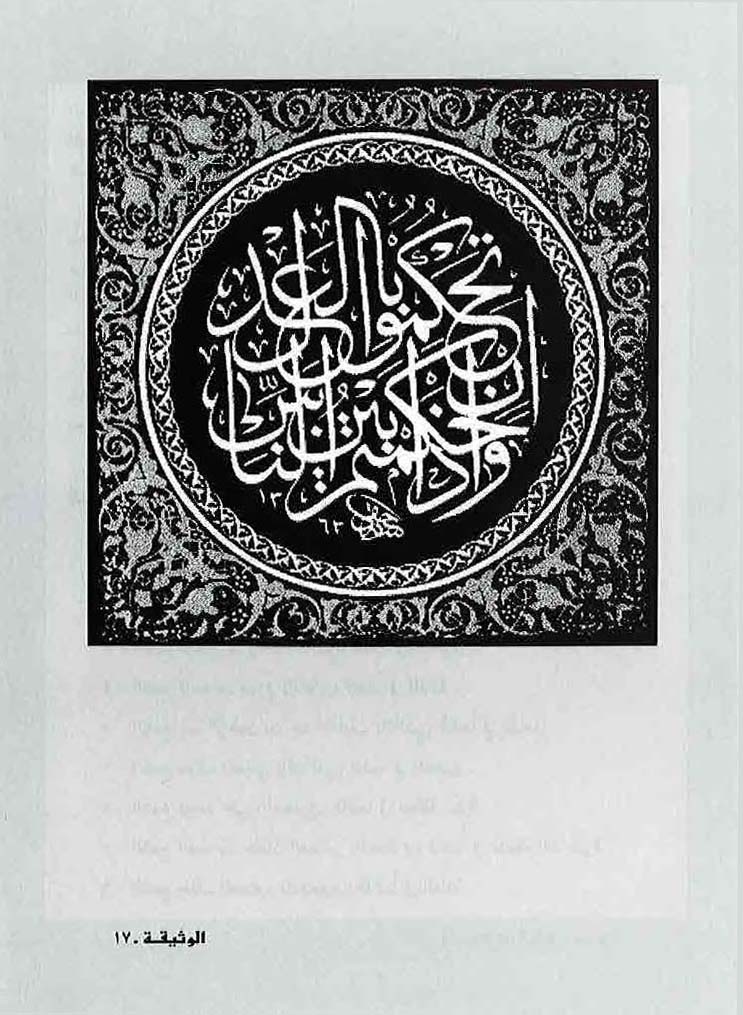 وإذا حكمتم بين الناس
أن تحكموا بالعدل
١٣٦٣
الوثيقـة - ١٧